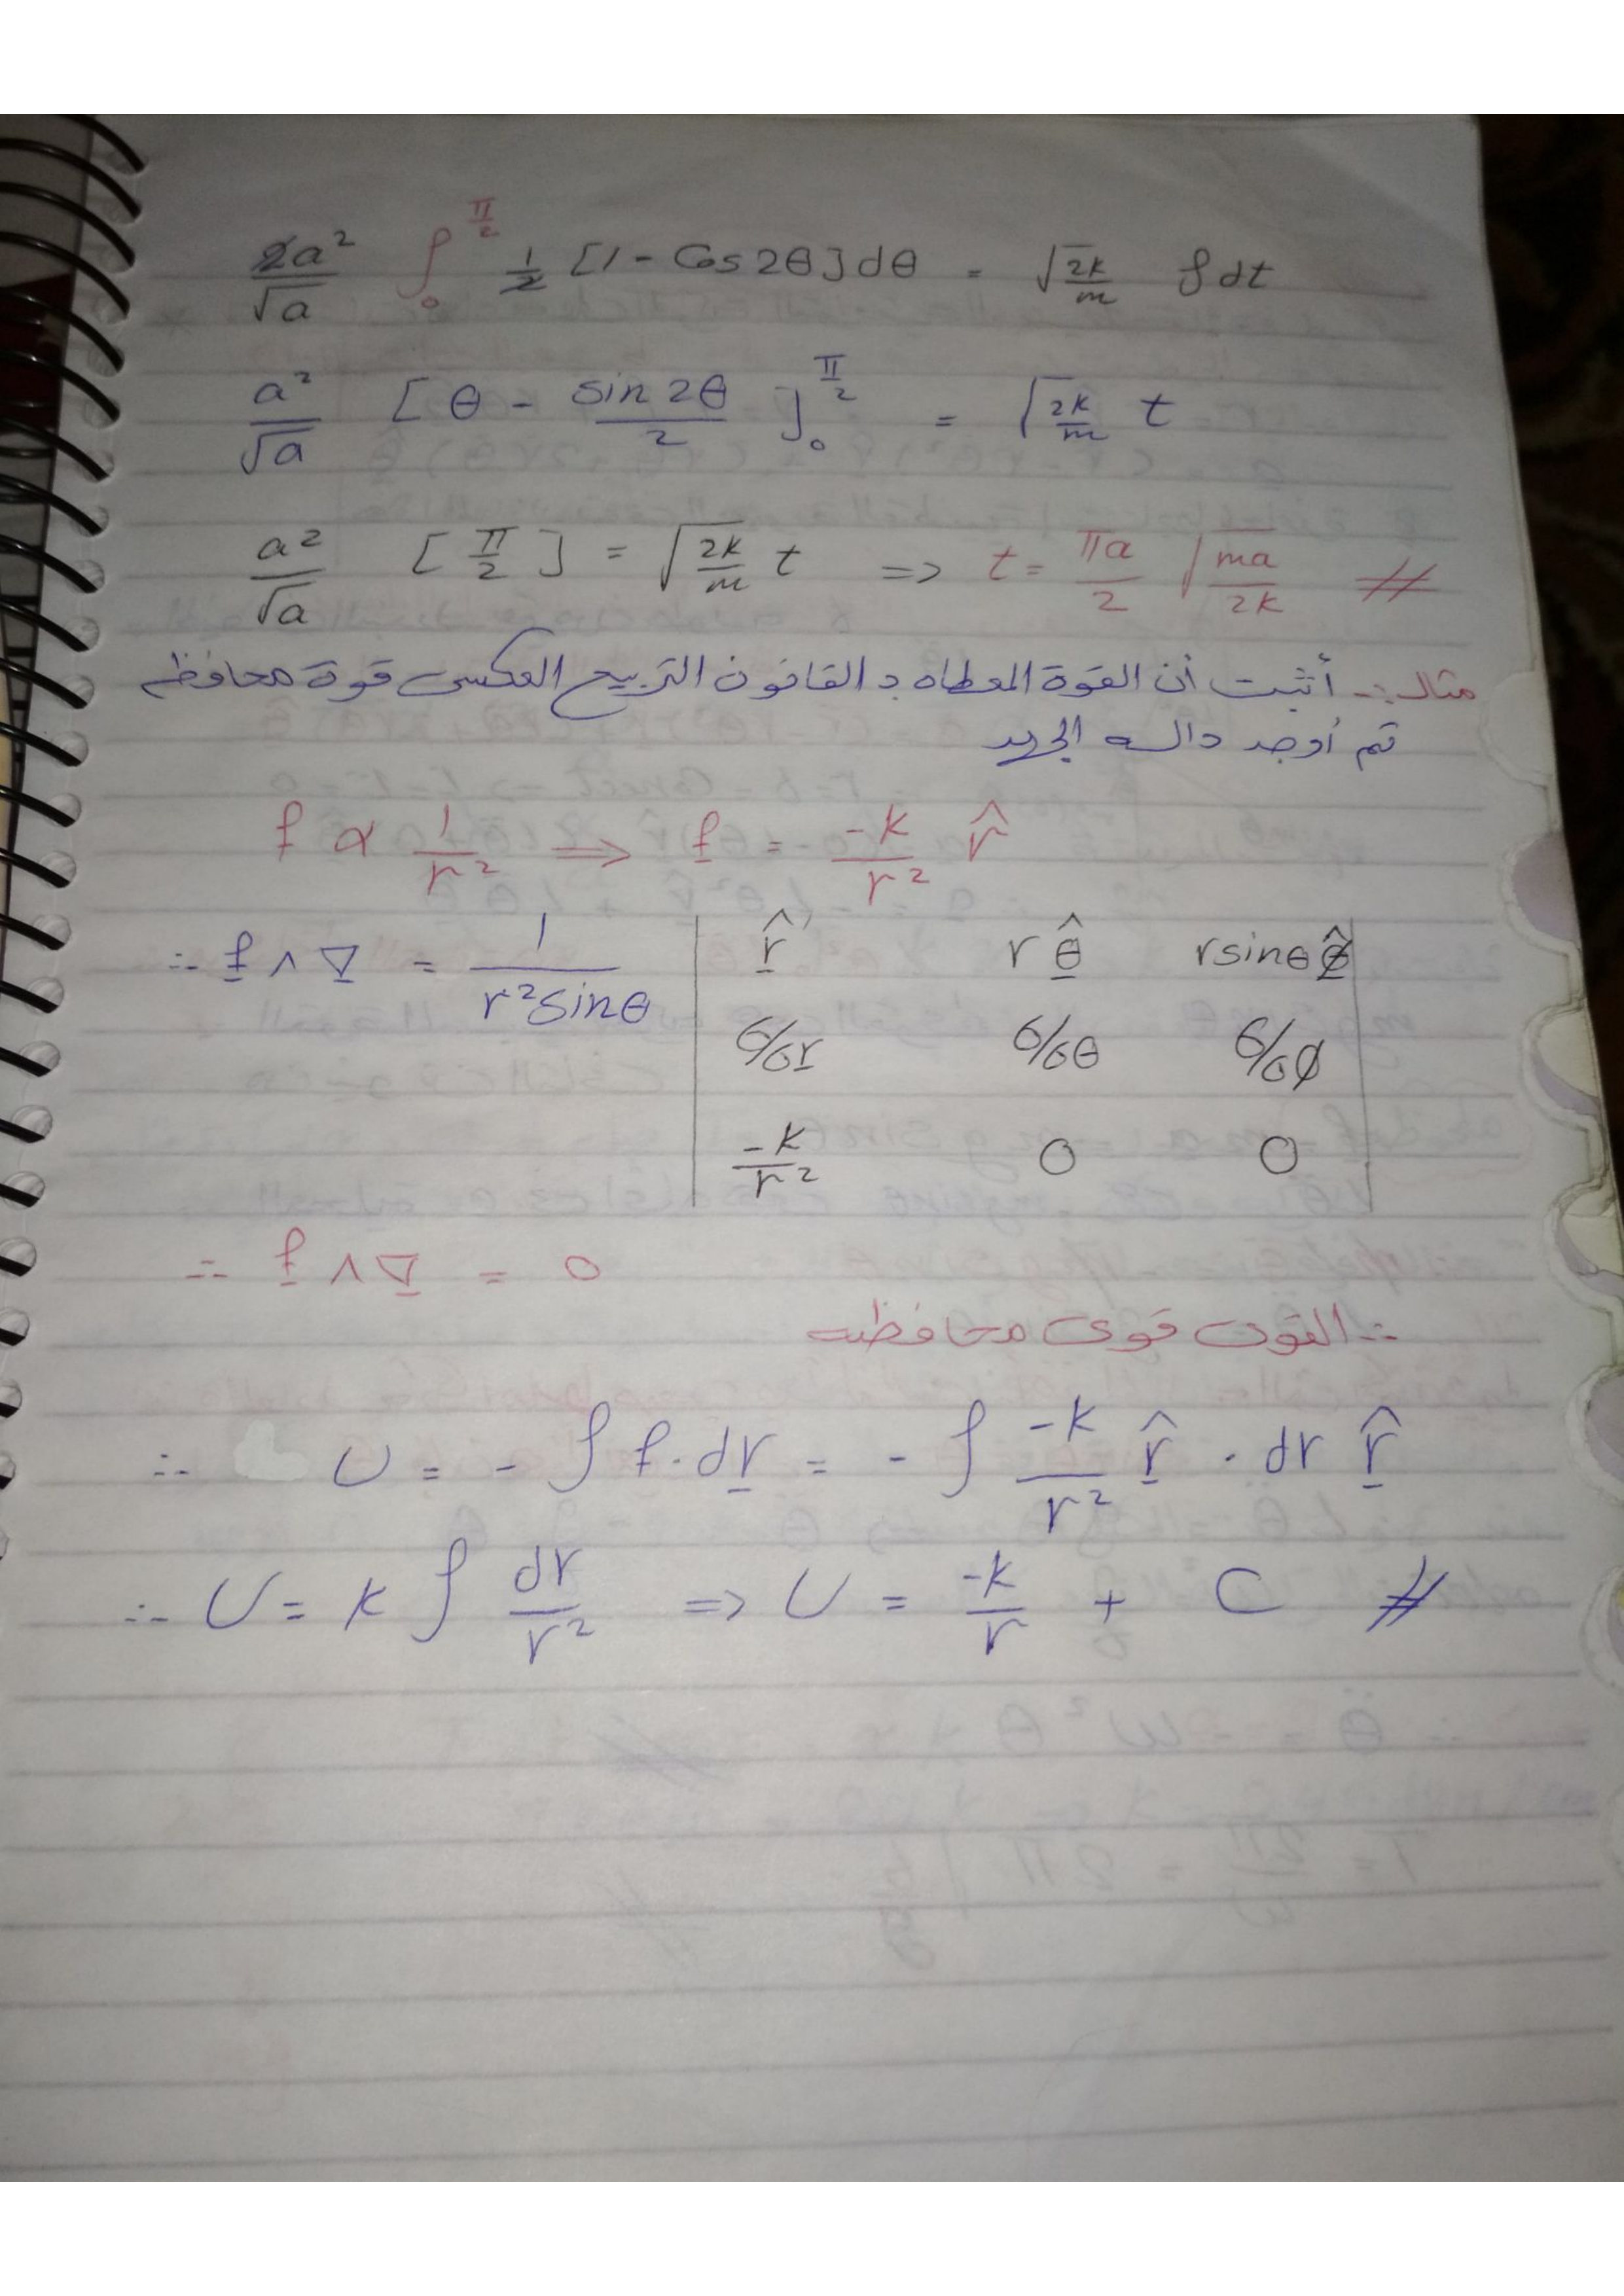 2a²/√a ∫₀^(π/2) 1/2 [1 - Cos 2θ] dθ = √(2k/m) ∫ dt
a²/√a [θ - sin 2θ/2]₀^(π/2) = √(2k/m) t
a²/√a [π/2] = √(2k/m) t => t = πa/2 √(ma/2k) #
مثال :- أثبت أن القوة المعطاه بـ القانون التربيع العكسى قوة محافظه
ثم أوجد داله الجهد
f α 1/r² => f = -k/r² r̂
∴ f ∧ ∇ = 1/(r² sinθ) | r̂ r θ̂ r sinθ φ̂ |
∂/∂r ∂/∂θ ∂/∂φ
-k/r² 0 0
∴ f ∧ ∇ = 0
∴ القوى قوى محافظه
∴ U = - ∫ f . dr = - ∫ -k/r² r̂ . dr r̂
∴ U = k ∫ dr/r² => U = -k/r + C #